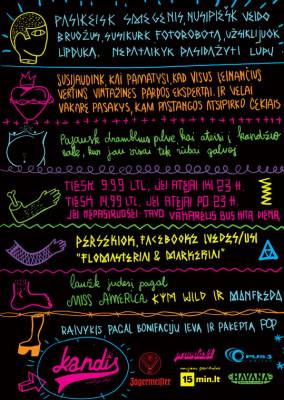 PASIKEISK SMEGENIS, NUSIPIEŠK VEIDO
BRUOŽUS, SUSIKURK FOTOROBOTĄ, UŽSIKLIJUOK
LIPDUKĄ. NEPATAIKYK PASIDAŽYTI LŪPŲ.
SUSIJAUDINK, KAI PAMATYSI, KAD VISUS ĮEINANČIUS
VERTINS VINTAŽINĖS MADOS EKSPERTAI. IR VĖLIAI
VAKARE PASAKYS, KAM PASTANGOS ATSIPIRKO ČEKIAIS
Pajausk drambliuš pilve, kai ateisi į kandžio
salę, kur jau visai tek rūbai galvoj
TIESK 9.99 LTL, JEI ATĖJAI IKI 23 H.
TIESK 14,99 LTL, JEI ATĖJAI PO 23 H.
JEI NEPASIRUOŠEI - TAVO VAKARĖLIS BUS KITĄ DIENĄ
PERSEKIOK, FACEBOOKE ĮVEDĘS/USI
"FLOMASTERIAI & MARKERIAI"
laužk judesį pagal
MISS AMERICA KYM WILD IR MANFREDĄ
RAIVYKIS PAGAL BONIFACIJŲ IEVA IR PAKEPTĄ POP
Kandis
Jägermeister
pravda.lt
15min.lt
OPUS 3
HAVANA